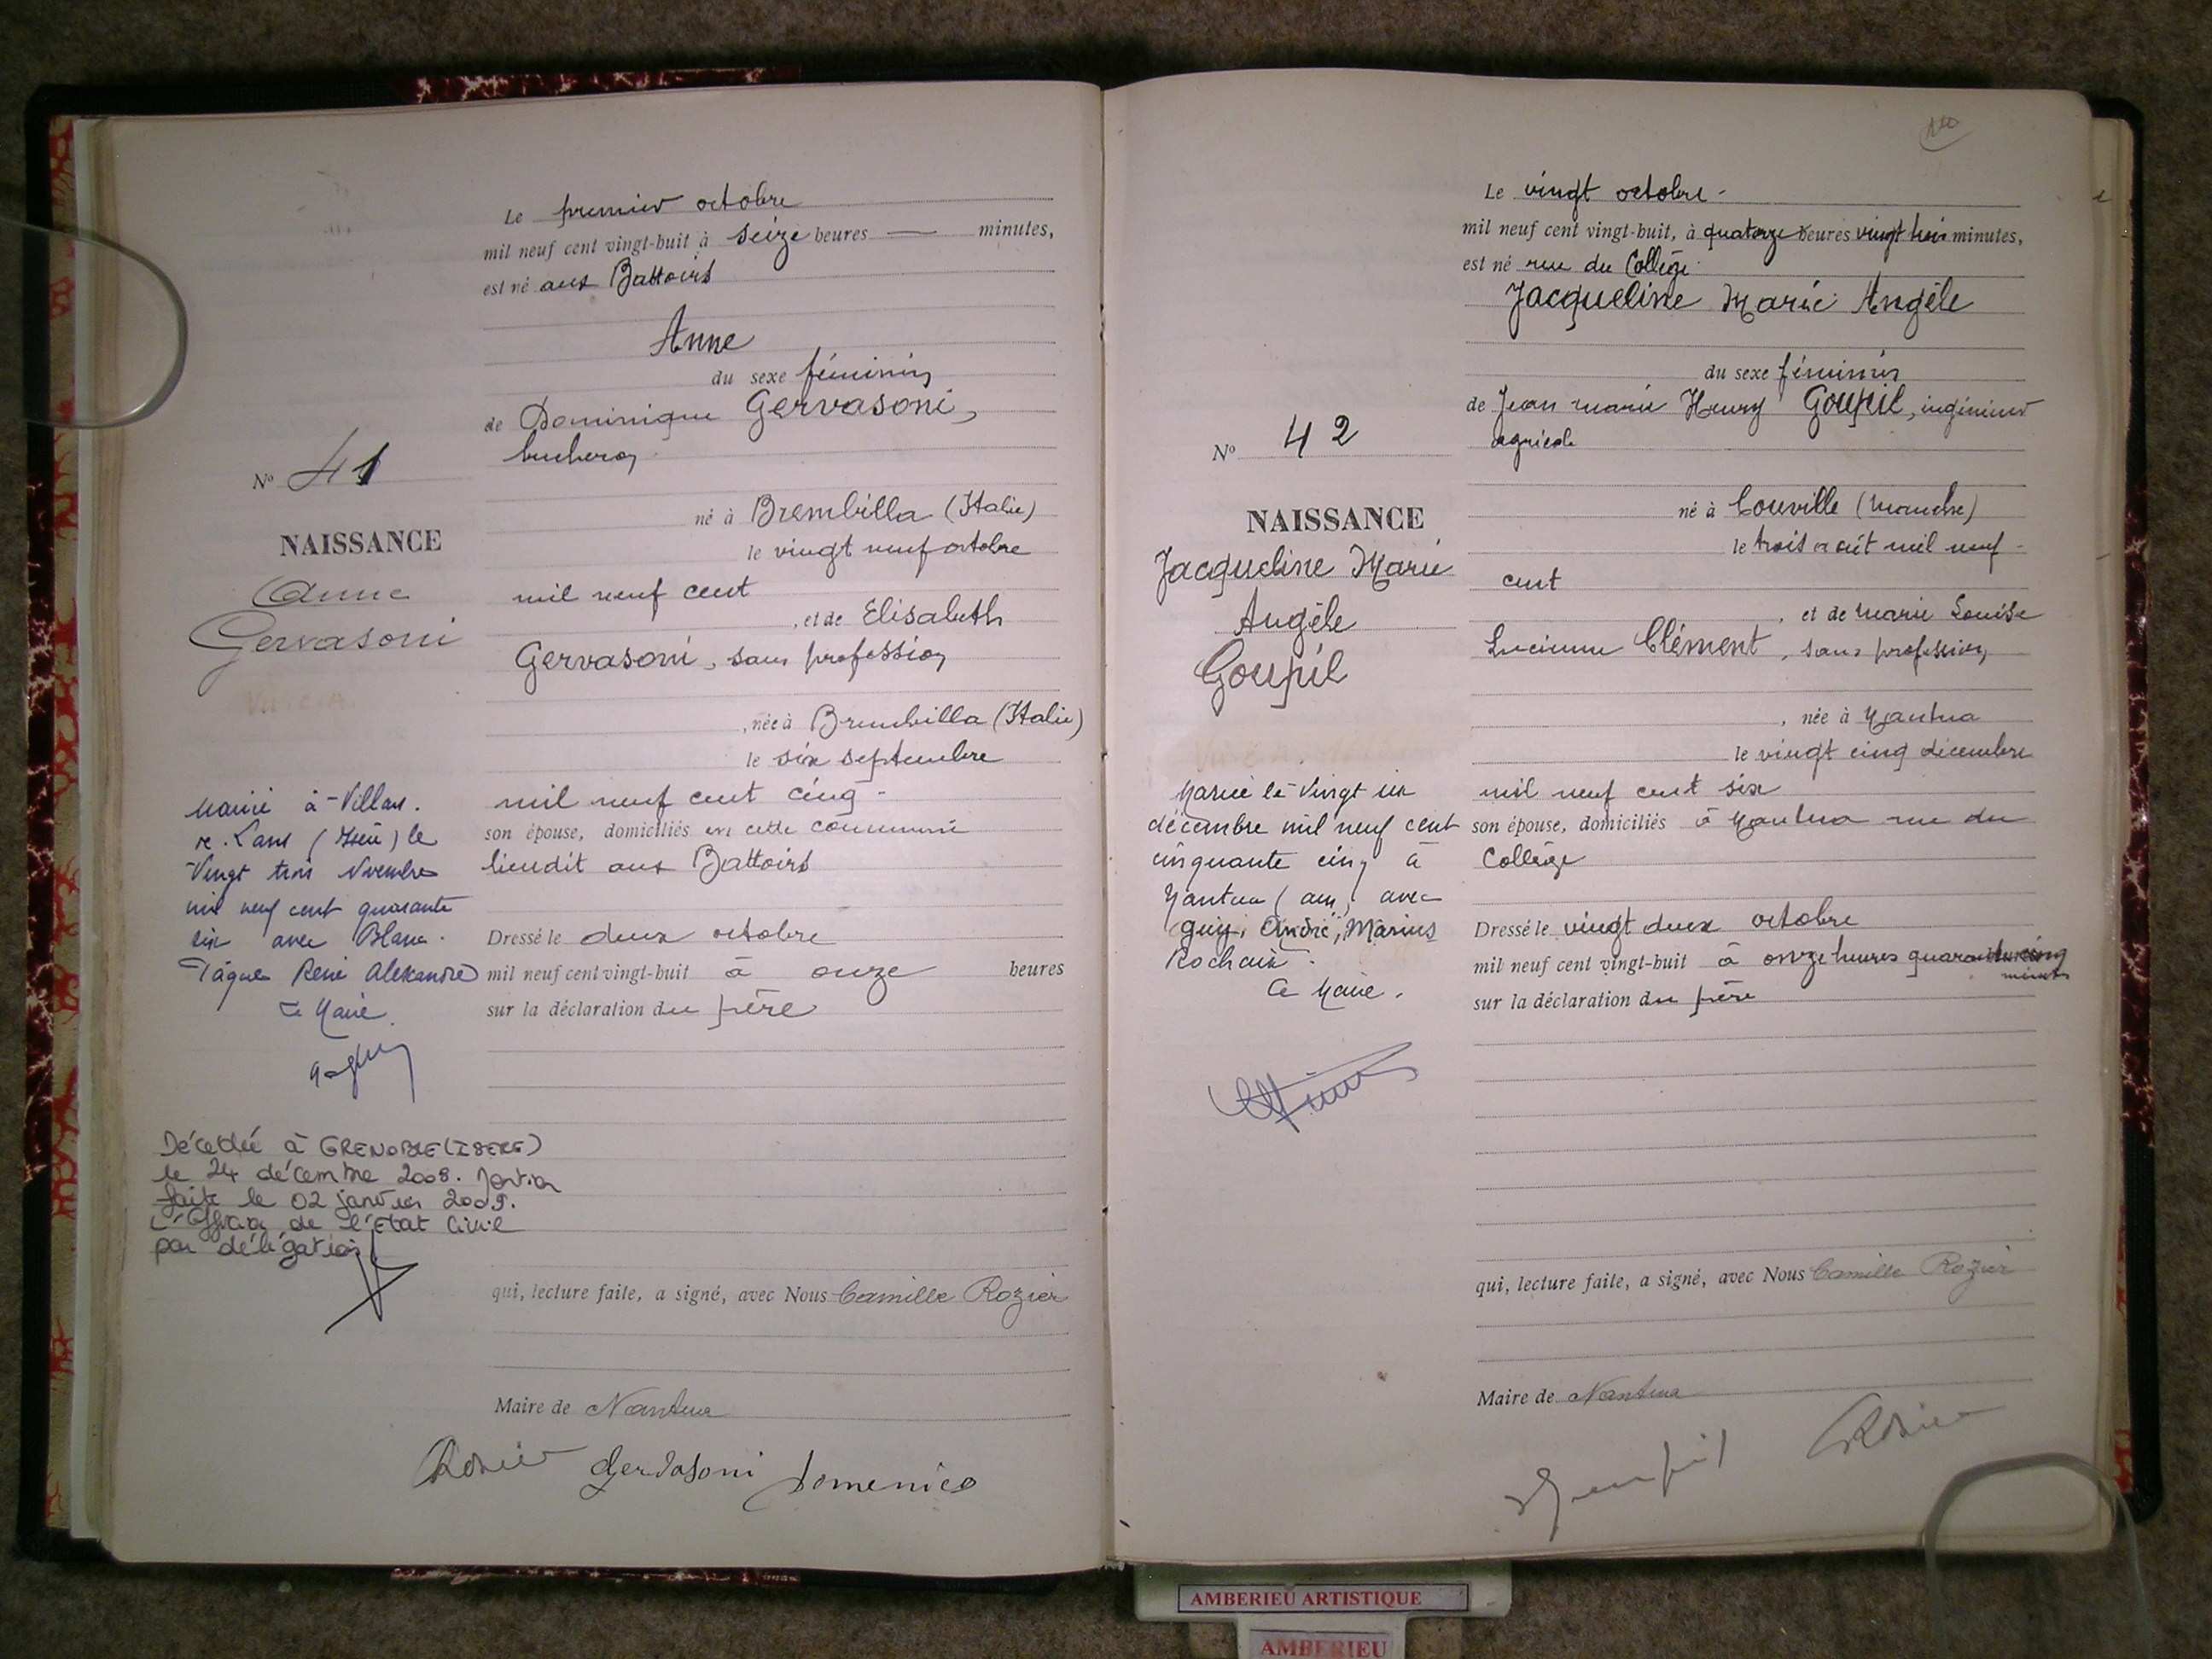 Le premier octobre
mil neuf cent vingt-huit à seize heures — minutes,
est né aux Battoirs
Anne
du sexe féminin
de Dominique Gervasoni,
bucheron
né à Brembilla (Italie)
le vingt neuf octobre
mil neuf cent
, et de Elisabeth
Gervasoni, sans profession
, née à Brembilla (Italie)
le six septembre
mil neuf cent cinq -
son épouse, domiciliés en cette commune
lieudit aux Battoirs
Dressé le deux octobre
mil neuf cent vingt-huit à onze heures
sur la déclaration du père
qui, lecture faite, a signé, avec Nous Camille Rozier
Maire de Nantua
Rozier Gervasoni Domenico
No 41
NAISSANCE
Anne
Gervasoni
Marié à Villars.
de. Lans (Isère) le
Vingt trois Novembre
mil neuf cent quarante
six avec Blanc.
Pâques René Alexandre
Le Maire.
Décédée à GRENOBLE (ISERE)
le 24 décembre 2008. Mention
faite le 02 janvier 2009.
L'Officier de l'Etat Civil
par délégation
Le vingt octobre -
mil neuf cent vingt-huit, à quatorze heures vingt trois minutes,
est né rue du Collège
Jacqueline Marie Angèle
du sexe féminin
de Jean Marie Henry Goupil, ingénieur
agricole
né à Couville (Manche)
le trois août mil neuf -
cent
, et de Marie Louise
Lucienne Clément, sans profession
, née à Nantua
le vingt cinq décembre
mil neuf cent six
son épouse, domiciliés à Nantua rue du
Collège
Dressé le vingt deux octobre
mil neuf cent vingt-huit à onze heures quarante cinq
minutes
sur la déclaration du père
qui, lecture faite, a signé, avec Nous Camille Rozier
Maire de Nantua
Goupil Rozier
No 42
NAISSANCE
Jacqueline Marie
Angèle
Goupil
Marié le Vingt un
décembre mil neuf cent
cinquante cinq à
Nantua (ain) avec
Guy, André, Marius
Rochaix.
Le Maire.
AMBERIEU ARTISTIQUE
AMBERIEU